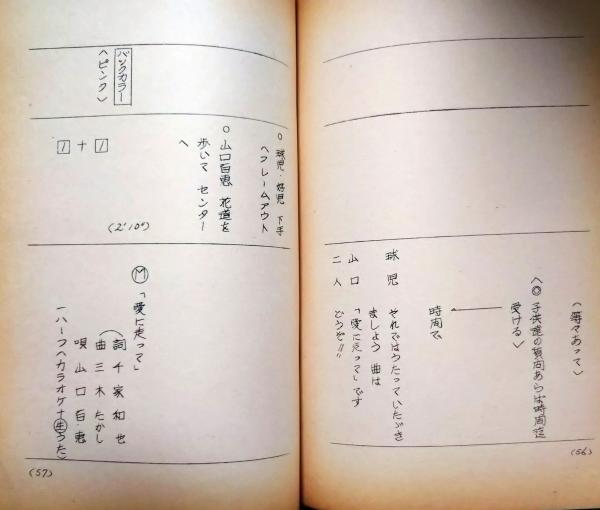 (等々あって)
<◎子供達の質問あらば時間迄
受ける>
時間で
球児 それではうたっていただき
ましょう 曲は
山口 「愛に走って」です
二人 どうぞ!!
(56)
バックカラー
<ピンク>
○球児・好児 下手
へフレームアウト
○山口百恵 花道を
歩いて センター
へ
1+1
(2'10")
Ⓜ「愛に走って」
詞 千家和也
曲 三木たかし
唄 山口百恵
(ハーフ<カラオケ+生うた>
(57)